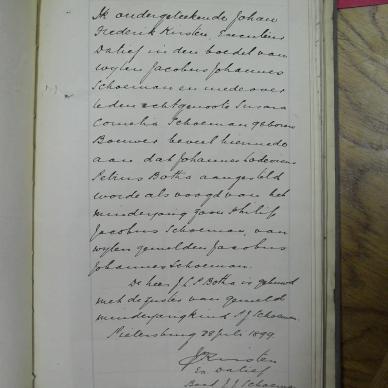 Ik ondergeteekende Johan
Frederik Kirsten, Executeur
Datief in den boedel van
wylen Jacobus Johannes
Schoeman en mede over
leden echtgenoote Susara
Cornelia Schoeman geboren
Brouwer beveel hiermede
aan dat Johannes Lodewicus
Petrus Botha aangesteld
worde als voogd van het
minderjarig zoon Philip
Jacobus Schoeman, van
wylen gemelden Jacobus
Johannes Schoeman.
De heer J.L.P. Botha is gehuwd
met de zuster van gemeld
minderjarig kind P J Schoeman
Pietersburg 28 Juli 1899.
JF Kirsten
Ex Datief
Boed J J Schoeman